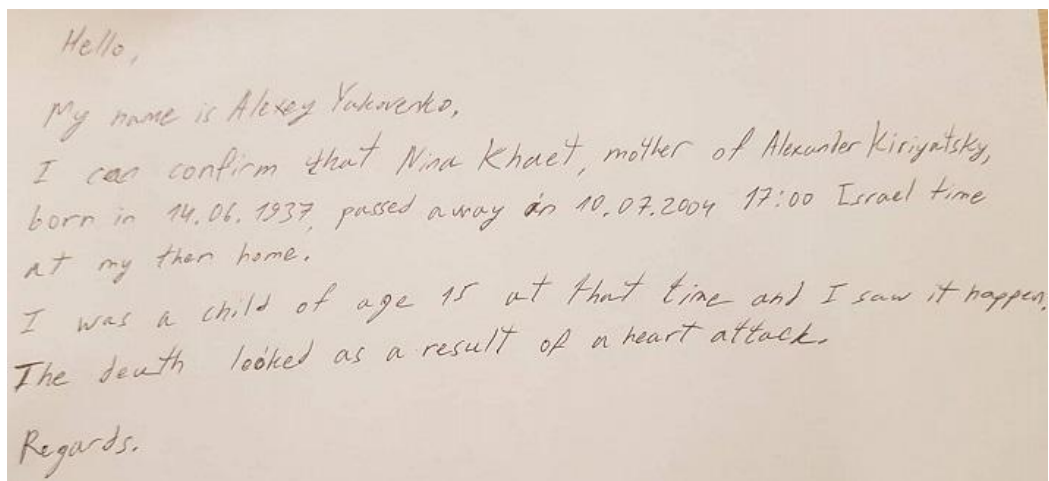 Hello,
My name is Alexey Yakovenko,
I can confirm that Nina Khaet, mother of Alexander Kiriyatsky,
born in 14.06.1937, passed away in 10.07.2004 17:00 Israel time
at my then home.
I was a child of age 15 at that time and I saw it happen.
The death looked as a result of a heart attack.
Regards.